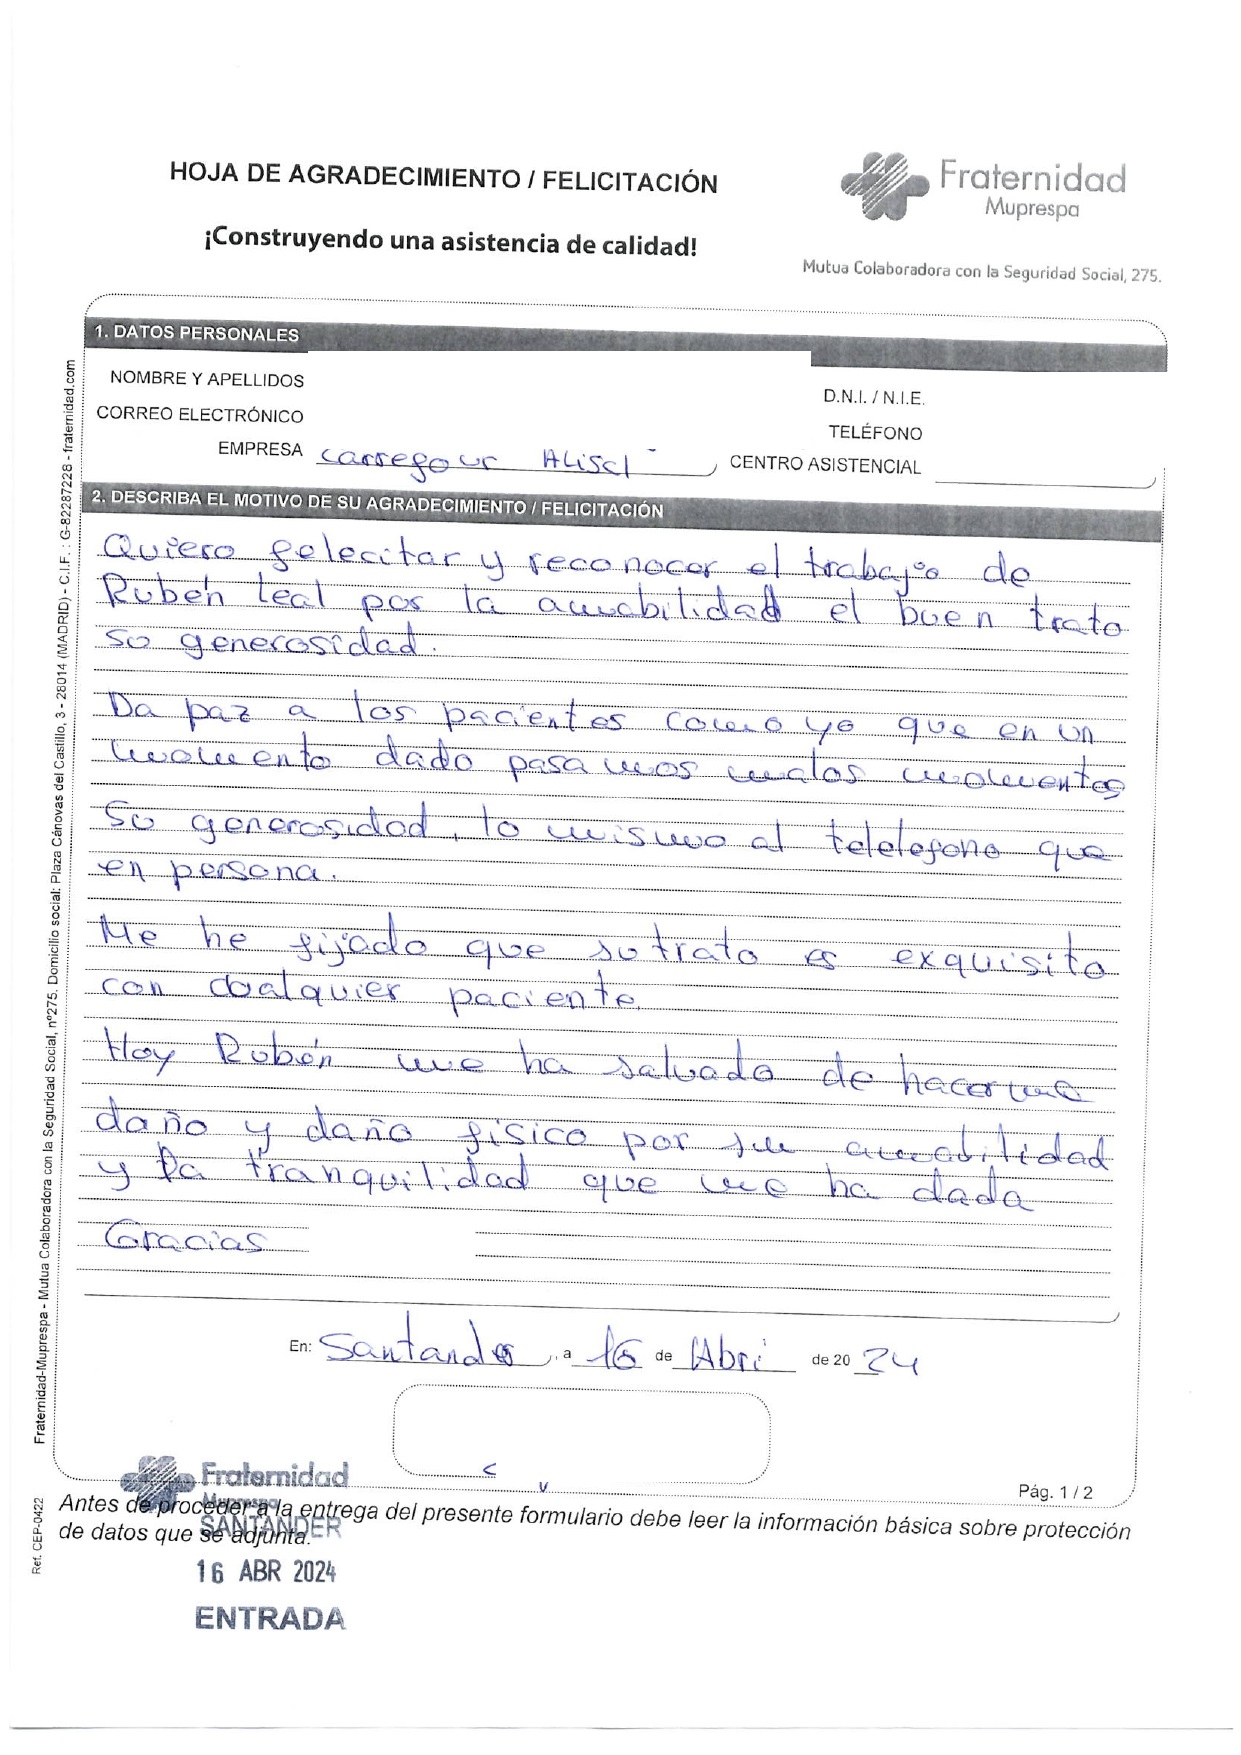 HOJA DE AGRADECIMIENTO / FELICITACIÓN
¡Construyendo una asistencia de calidad!
Fraternidad
Muprespa
Mutua Colaboradora con la Seguridad Social, 275.
1. DATOS PERSONALES
NOMBRE Y APELLIDOS
D.N.I. / N.I.E.
CORREO ELECTRÓNICO
TELÉFONO
EMPRESA Carrefour
CENTRO ASISTENCIAL
2. DESCRIBA EL MOTIVO DE SU AGRADECIMIENTO / FELICITACIÓN
Quiero felecitar y reconocer el trabajo de
Rubén Leal por la amabilidad el buen trato
su generosidad.
Da paz a los pacientes como yo que en un
momento dado pasamos malos momentos
Su generosidad, lo mismo al telelefono que
en persona.
Me he fijado que su trato es exquisito
con cualquier paciente.
Hoy Rubén me ha salvado de hacerme
daño y daño físico por su amabilidad
y la tranquilidad que me ha dada
Gracias
En: Santander, a 16 de Abri de 20 24
Pág. 1 / 2
Antes de proceder a la entrega del presente formulario debe leer la información básica sobre protección
de datos que se adjunta.
Fraternidad
Muprespa
SANTANDER
16 ABR 2024
ENTRADA
Fraternidad-Muprespa - Mutua Colaboradora con la Seguridad Social, nº275. Domicilio social: Plaza Cánovas del Castillo, 3 - 28014 (MADRID) - C.I.F. : G-82287228 - fraternidad.com
Ref. CEP-0422